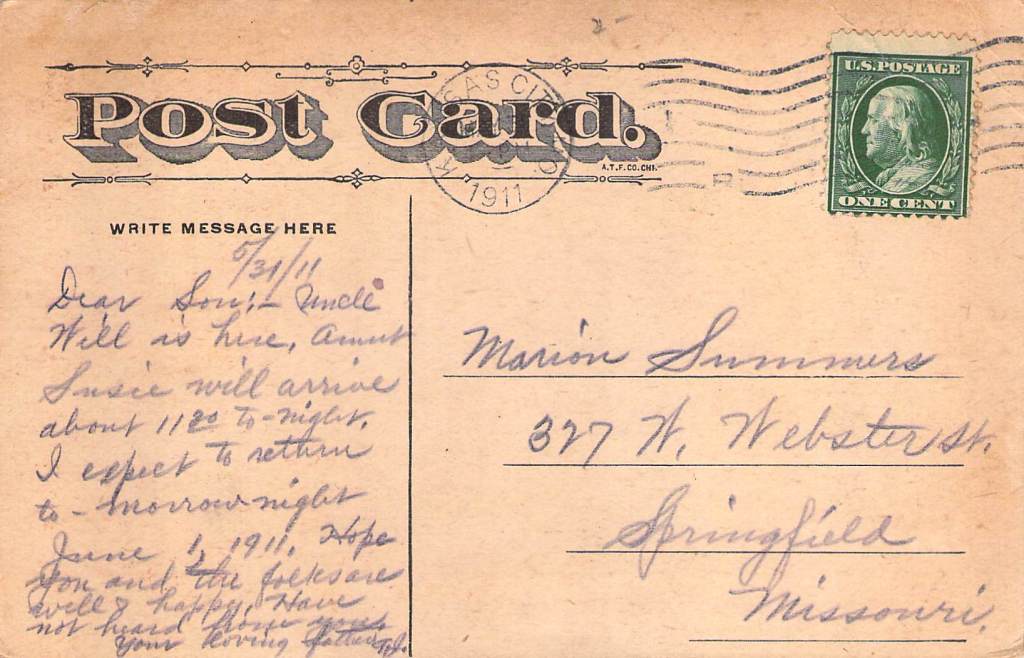 Post Card.
A.T.F.CO.CHI.
KANSAS CITY MO.
1911
U.S. POSTAGE
ONE CENT
WRITE MESSAGE HERE
5/31/11
Dear Son:- Uncle
Will is here, Aunt
Susie will arrive
about 11 30 to-night.
I expect to return
to-morrow night
June 1, 1911. Hope
you and the folks are
well & happy. Have
not heard from you.
Your loving father
Marion Summers
327 W. Webster St.
Springfield
Missouri.